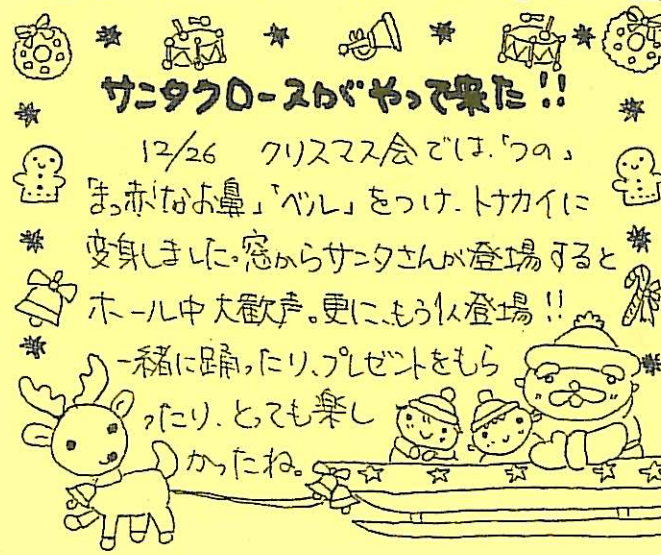 サンタクロースがやって来た!!
12/26 クリスマス会では、「つの」
「まっ赤なお鼻」「ベル」をつけ、トナカイに
変身しました。窓からサンタさんが登場すると
ホール中大歓声。更に、もう1人登場!!
一緒に踊ったり、プレゼントをもら
ったり、とっても楽し
かったね。